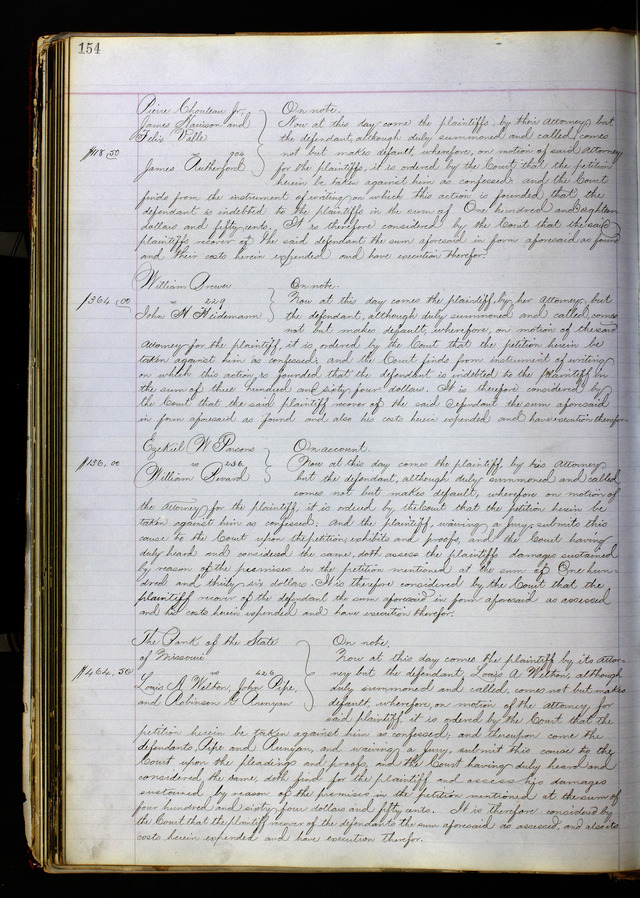 154
Pierre Chouteau Jr. On note.
James Harrison and Now at this day come the plaintiffs by their Attorney but
Felix Valle the defendant, although duly summoned and called, comes
$118.50 vs 904 not but makes default, wherefore, on motion of said Attorney
James Rutherford for the plaintiffs, it is ordered by the Court that the petition
herein be taken against him as confessed: and the Court
finds from the instrument of writing on which this action is founded, that the
defendant is indebted to the plaintiffs in the sum of One hundred and eighteen
dollars and fifty cents. It is therefore considered by the Court that the said
plaintiffs recover of the said defendant the sum aforesaid in form aforesaid as found
and their costs herein expended and have execution therefor.
William Brewer On note.
$364.00 vs 229 Now at this day comes the plaintiff, by her Attorney, but
John H Heidemann the defendant, although duly summoned and called, comes
not but makes default, wherefore, on motion of the said
Attorney for the plaintiff, it is ordered by the Court that the petition herein be
taken against him as confessed; and the Court finds from instrument of writing
on which this action is founded that the defendant is indebted to the plaintiff in
the sum of three hundred and sixty four dollars. It is therefore considered by
the Court that the said plaintiff recover of the said defendant the sum aforesaid
in form aforesaid as found and also his costs herein expended and have execution therefor.
Ezekiel W Parsons On account.
$136.00 vs 236 Now at this day comes the plaintiff, by his Attorney
William Berard but the defendant, although duly summoned and called
comes not but makes default, wherefore on motion of
the Attorney for the plaintiff, it is ordered by the Court that the petition herein be
taken against him as confessed: And the plaintiff, waiving a jury, submits this
cause to the Court upon the petition, exhibits and proofs, and the Court having
duly heard and considered the same, doth assess the plaintiffs damages sustained
by reason of the premises in the petition mentioned at the sum of One hun-
dred and thirty six dollars. It is therefore considered by the Court that the
plaintiff recover of the defendant the sum aforesaid in form aforesaid as assessed
and his costs herein expended and have execution therefor.
The Bank of the State On note.
of Missouri Now at this day comes the plaintiff by its attor-
$464.50 vs 426 ney but the defendant, Louis A Welton, although
Louis A Welton, John Pipe, duly summoned and called, comes not but makes
and Robinson G Runyan default, wherefore, on motion of the attorney for
said plaintiff it is ordered by the Court that the
petition herein be taken against him as confessed; and thereupon come the
defendants Pipe and Runyan, and waiving a jury, submit this cause to the
Court upon the pleadings and proofs, and the Court having duly heard and
considered the same, doth find for the plaintiff and assess his damages
sustained by reason of the premises in the petition mentioned at the sum of
four hundred and sixty four dollars and fifty cents. It is therefore considered by
the Court that the plaintiff recover of the defendants the sum aforesaid as assessed, and also its
costs herein expended and have execution therefor.